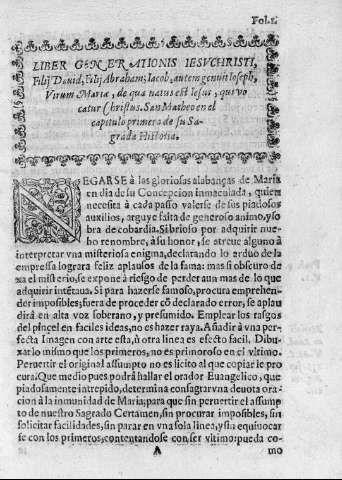 Fol.1.
LIBER GENERATIONIS IESVCHRISTI,
Filij David, Filij Abraham; Iacob, autem genuit Ioseph,
Virum Mariæ, de qua natus est Iesus, qui vo
catur Christus. San Matheo en el
capitulo primero de su Sa-
grada Historia.
NEGARSE à las gloriosas alabanças de Maria
en dia de su Concepcion inmaculada, quien
necesita à cada passo valerse de sus piadosos
auxilios, arguye falta de generoso animo, y so
bra de cobardia. Si brioso por adquirir nue-
bo renombre, à su honor, se atreue alguno à
interpretar vna misteriosa enigma, declarando lo arduo de la
empressa lograra feliz aplausos de la fama: mas si obscuro de
xa el misterio, se expone à riesgo de perder aun mas de lo que
adquirir intētaua. Si para hazerse famoso, procura emprehen-
der imposibles; fuera de proceder cō declarado error, se aplau
dirà en alta voz soberano, y presumido. Emplear los rasgos
del pincel en faciles ideas, no es hazer raya. Añadir à vna per-
fecta Imagen con arte esta, ù otra linea es efecto facil. Dibu-
xarlo mismo que los primeros, no es primoroso en el vltimo.
Peruertir el original assumpto no es licito al que copiarle pro
cura. Que medio pues podrà hallar el orador Euangelico, que
piadosamente intrepido, determina consagrar vna deuota ora-
cion à la inmunidad de Maria; para que sin peruertir el assump
to de nuestro Sagrado Certamen, sin procurar imposibles, sin
solicitar facilidades, sin parar en vna sola linea, y sin equiuocar
se con los primeros, contentandose con ser vltimo: pueda co-
A mo